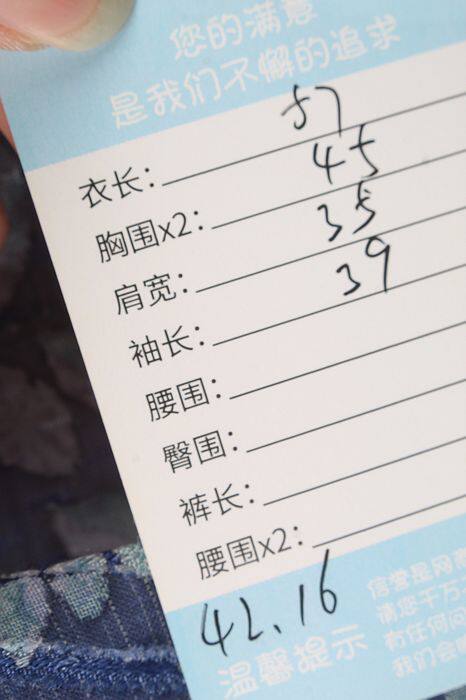 您的满意
是我们不懈的追求
衣长: 57
胸围x2: 45
肩宽: 35
袖长: 39
腰围:
臀围:
裤长:
腰围x2:
42.16
温馨提示
信誉是网
请您千万
有任何问
我们会